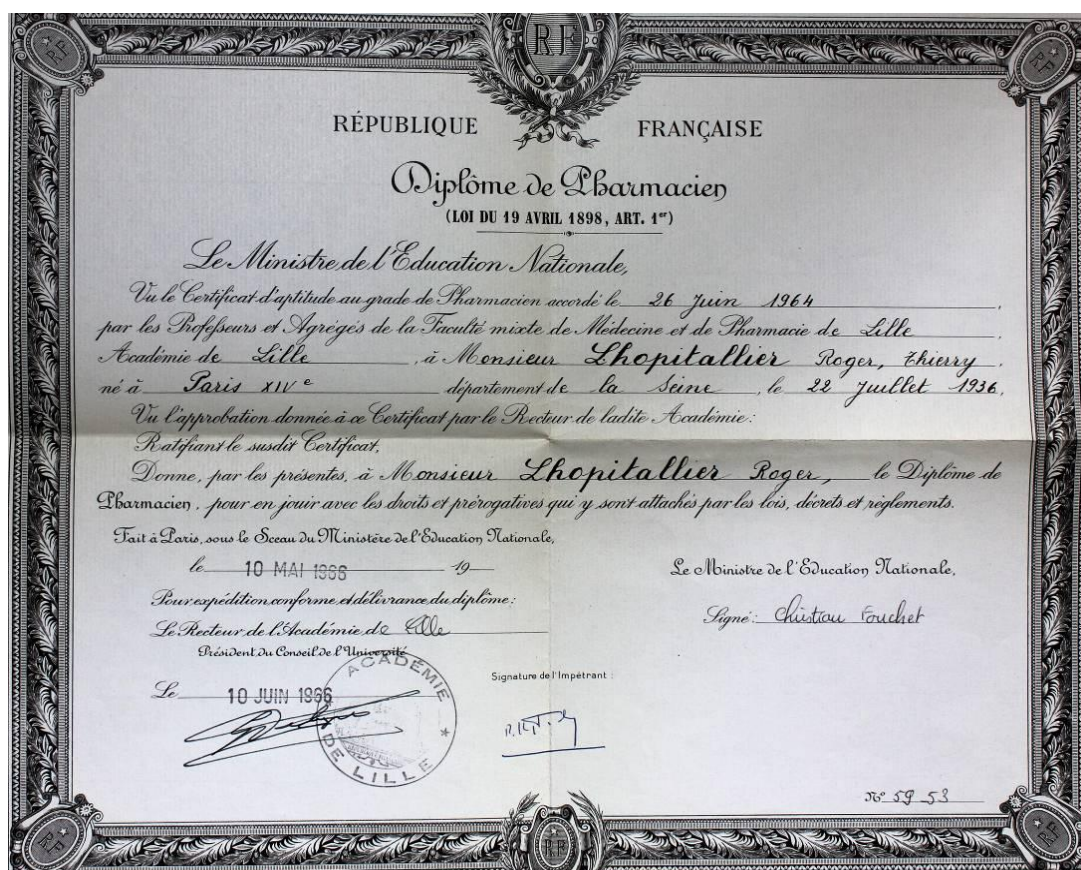 RF
RF
RF
RÉPUBLIQUE FRANÇAISE
Diplôme de Pharmacien
(LOI DU 19 AVRIL 1898, ART. 1er)
Le Ministre de l'Education Nationale,
Vu le Certificat d'aptitude au grade de Pharmacien accordé le 26 Juin 1964,
par les Professeurs et Agrégés de la Faculté mixte de Médecine et de Pharmacie de Lille,
Académie de Lille, à Monsieur Lhopitallier Roger, Thierry,
né à Paris XIVe département de la Seine, le 22 Juillet 1936,
Vu l'approbation donnée à ce Certificat par le Recteur de ladite Académie:
Ratifiant le susdit Certificat,
Donne, par les présentes, à Monsieur Lhopitallier Roger, le Diplôme de
Pharmacien, pour en jouir avec les droits et prérogatives qui y sont attachés par les lois, décrets et règlements.
Fait à Paris, sous le Sceau du Ministère de l'Education Nationale,
le 10 MAI 1966 19
Le Ministre de l'Education Nationale,
Pour expédition conforme et délivrance du diplôme:
Signé: Christian Fouchet
Le Recteur de l'Académie de Lille
Président du Conseil de l'Université
Signature de l'Impétrant:
Le 10 JUIN 1966
ACADÉMIE DE LILLE
No 59 53
RF
RF
RF